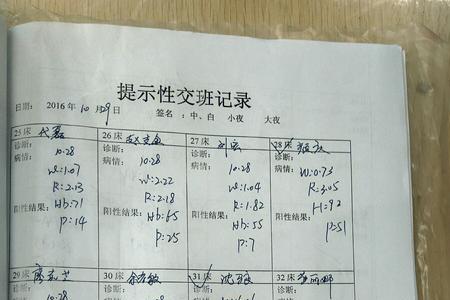 提示性交班记录
日期： 2016 年 10 月 29 日 签名：中、白 小夜 大夜
25 床 26 床 27 床 28 床
诊断： 诊断： 诊断： 诊断：
病情： 10.28 病情： 10.28 病情： 10.28 病情： W:0.73
W:1.07 W:2.22 W:1.04 R:3.05
R:2.13 R:2.18 R:1.82 H:92
阳性结果： Hb:71 阳性结果： Hb:65 阳性结果： Hb:55 阳性结果： P:51
P:14 P:25 P:7
29 床 30 床 31 床 32 床
诊断： 诊断： 诊断： 诊断：